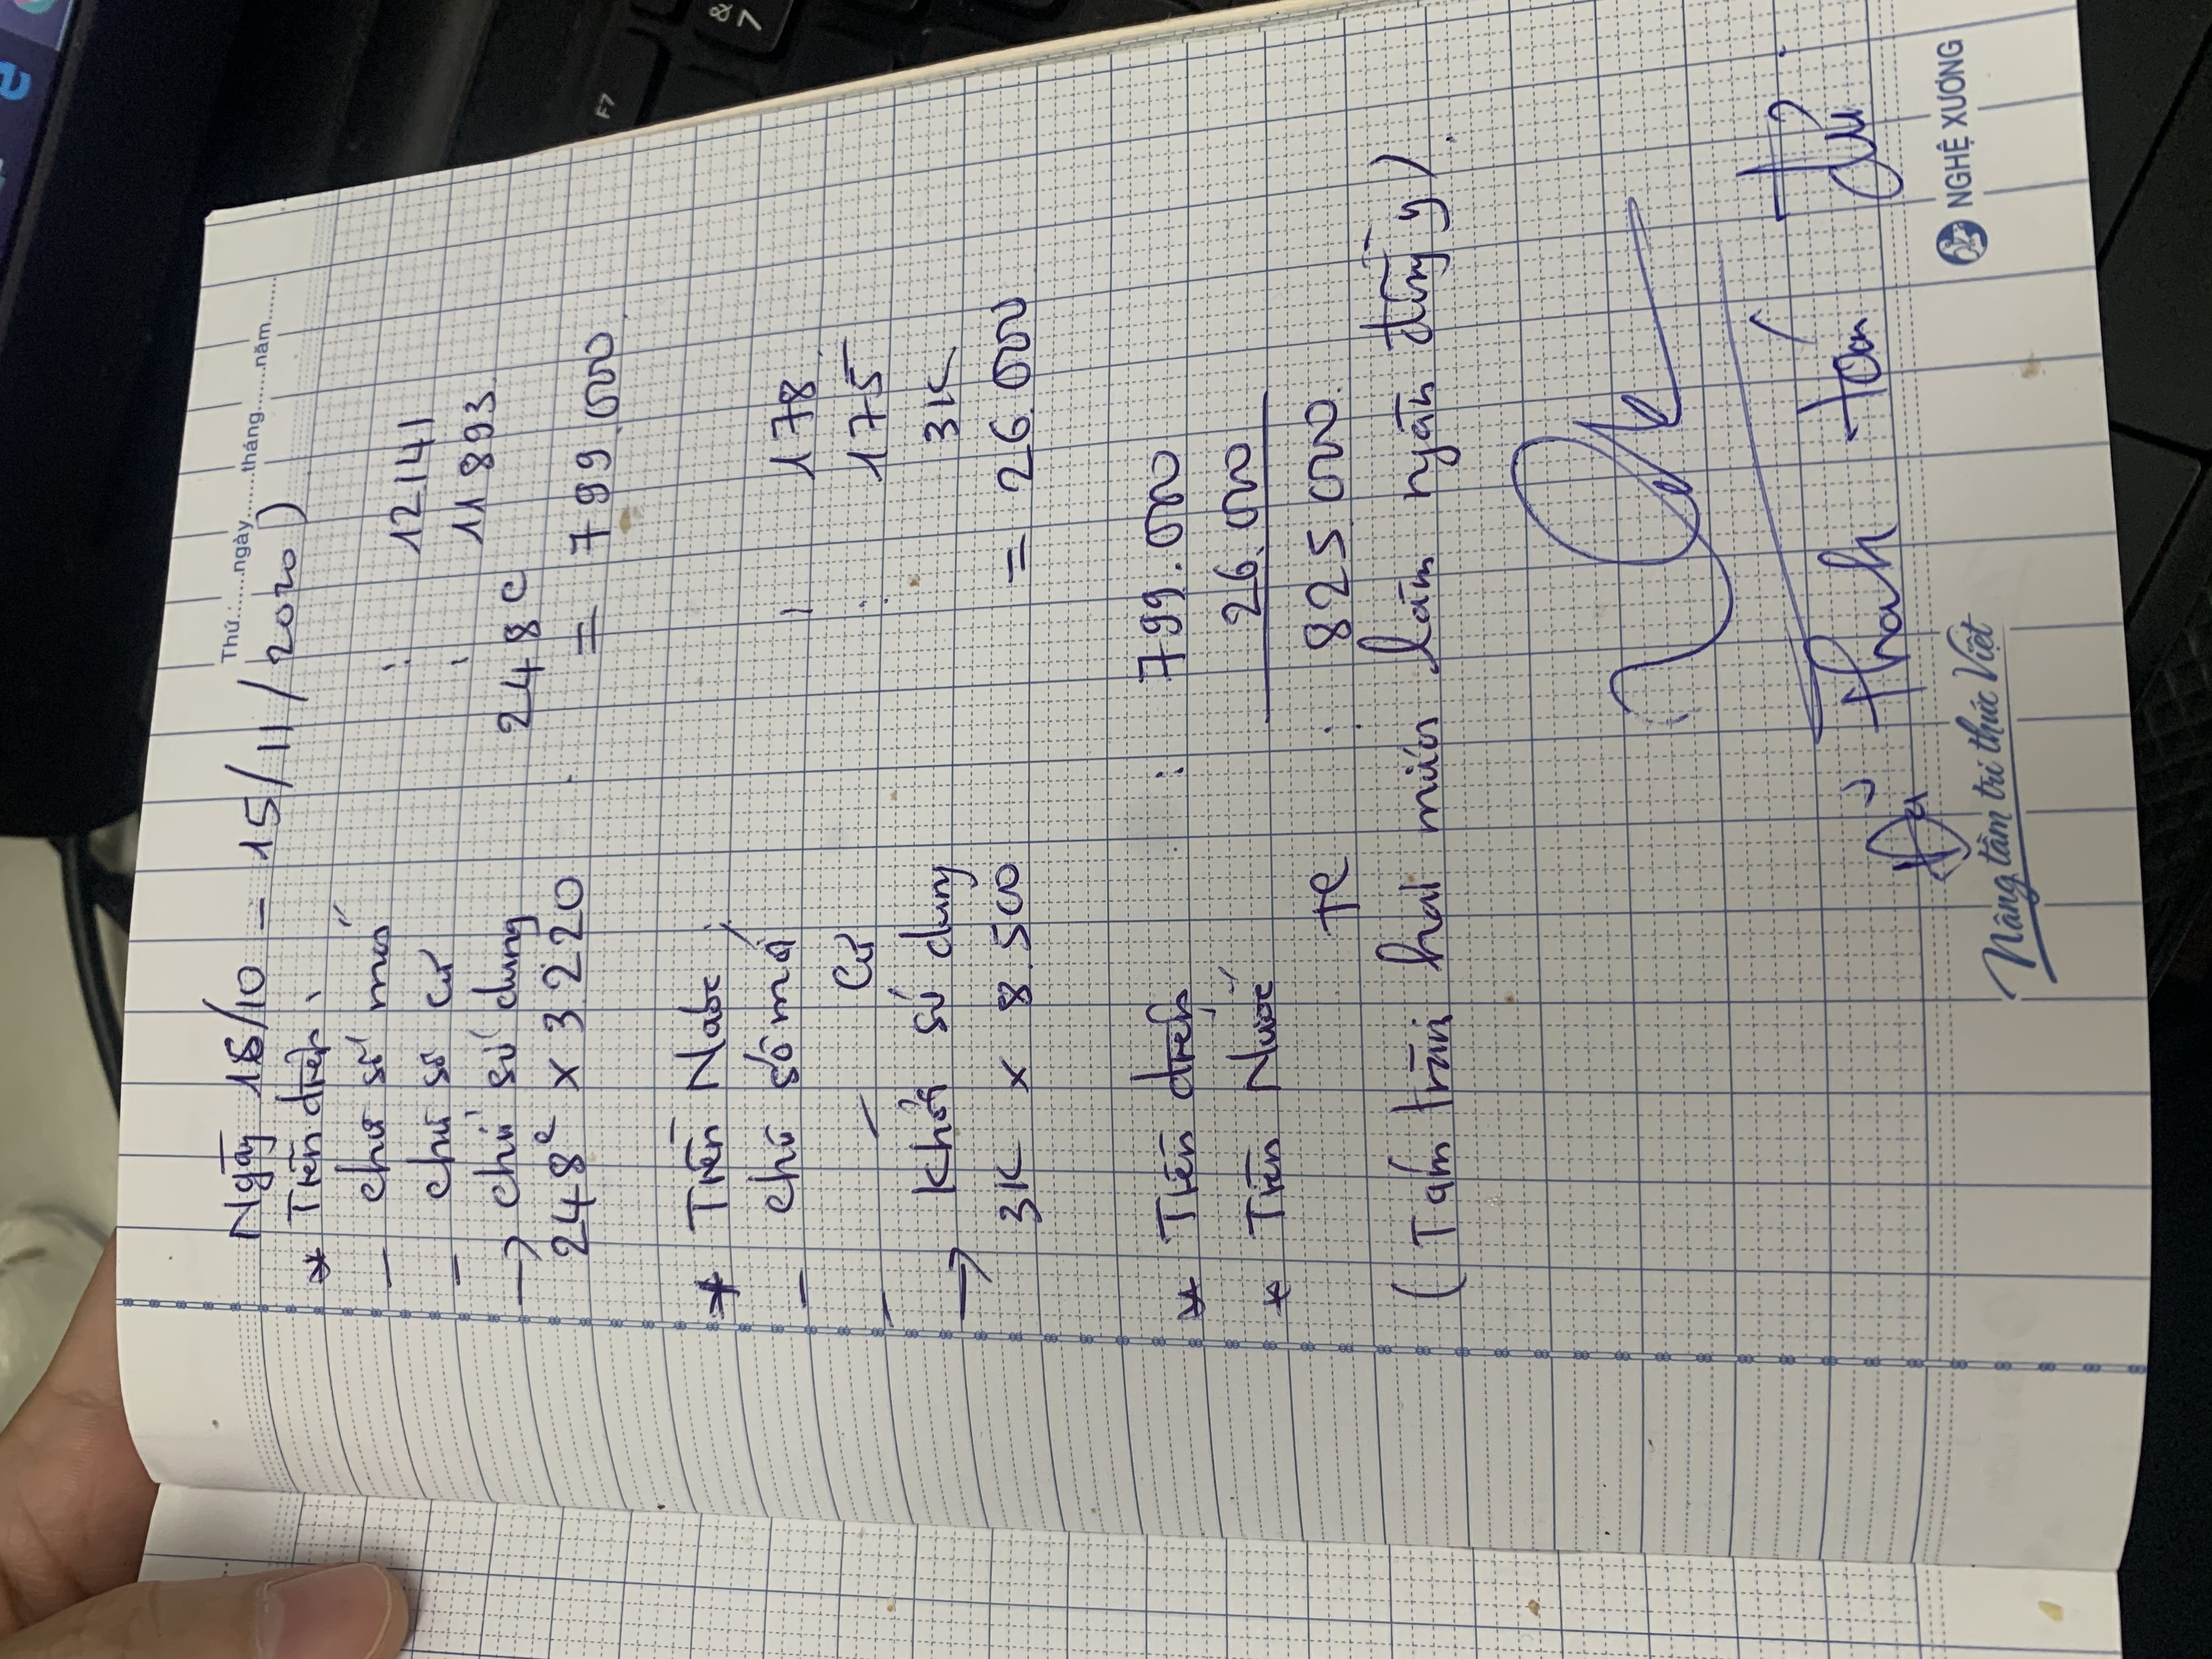 Thứ:......ngày.......tháng.......năm.......
Ngày 15/10 - 15/11/2020)
* Tiền điện :
- chữ số mới : 12141
- chữ số cũ : 11893
→ chữ sử dụng 248c
248c x 3.220 = 799.000
* Tiền Nước :
- chữ số mới : 178
- - Cũ : 175
→ Khối sử dụng 3K
3K x 8.500 = 26.000
* Tiền điện : 799.000
* Tiền Nước 26.000
TC : 825.000
(Tám trăm hai mươi lăm ngàn đồng y).
Đã Thanh toán đủ.
Nâng tầm tri thức Việt
NGHỆ XƯƠNG
F7
&
7